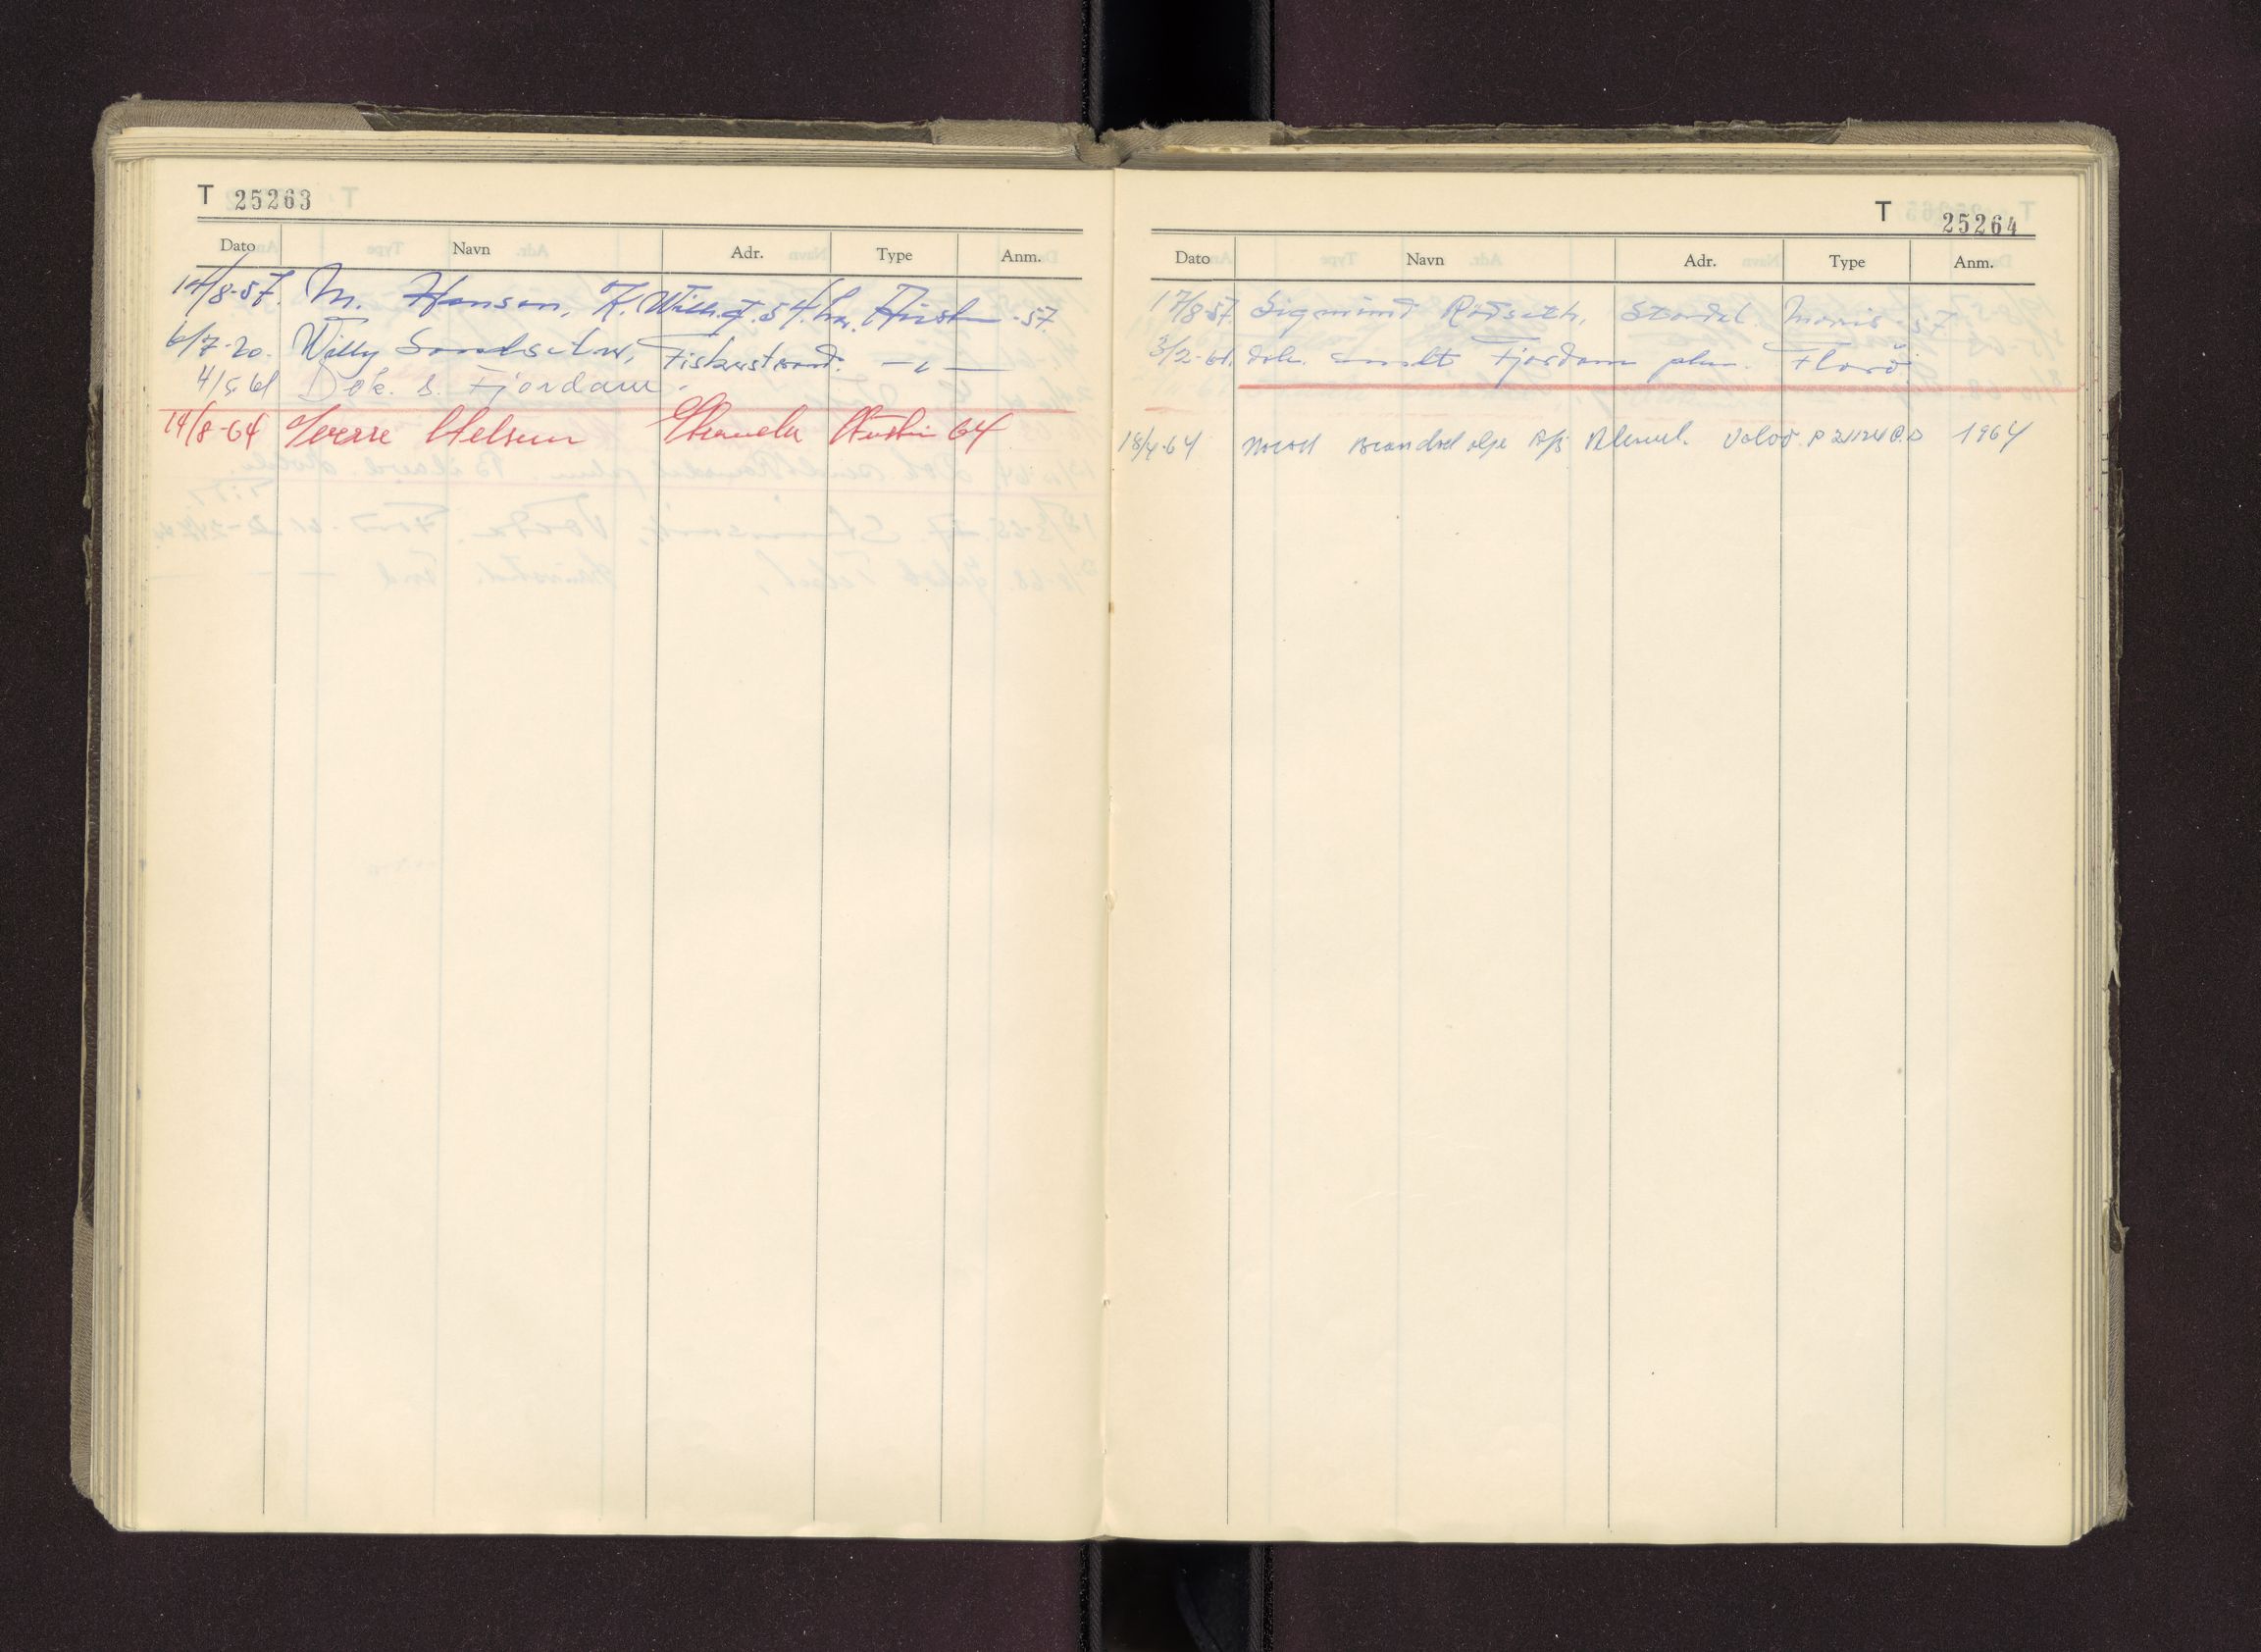 T 25263
Dato Navn Adr. Type Anm.
14/8-57. M. Hansen, K. Willh.g. 54. Austin -57.
6/7-20. Willy Sandseter, Fiskerstrand. — " —
4/5 61 Dok. s. Fjordane.
14/8-64 Sverre Nelsen Stranda Austin 64
T 25264
Dato Navn Adr. Type Anm.
17/8-57. Sigmund Rødseth, Stordal. Morris -57
3/2-61. dok. sendt Fjordane Florø.
18/4-64 Norsk Brændsel olje A/S Ålesund. Volvo 1964